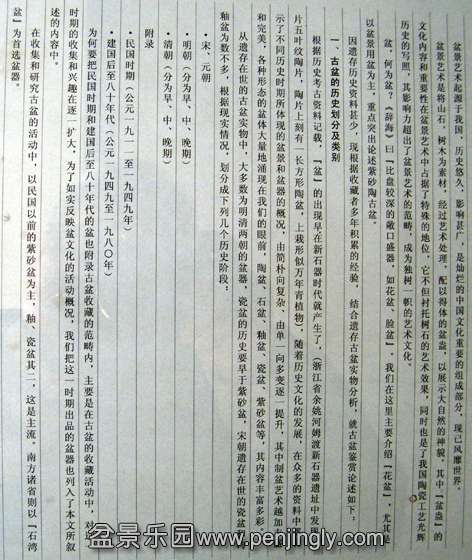 盆景艺术起源于我国，历史悠久，影响甚广，是灿烂的中国文化重要的组成部分，现已风靡世界。
盆景艺术是将山石、树木为素材，经过艺术处理，配以得体的盆盎，以展示大自然的神貌。其中『盆盎』的
文化内容和重要性在盆景艺术中占据了特殊的地位，它不但衬托树石的艺术效果，同时也是了我国陶瓷工艺光辉
历史的写照，其影响力超出了盆景艺术的范畴，成为独树一帜的艺术文化。
盆，何为盆，《辞海》曰『比盘较深的敞口盛器，如花盆、脸盆』，我们在这里主要介绍『花盆』，尤其
以盆景用盆为主，重点突出论述紫砂陶古盆。
因遗存历史资料甚少，现根据收藏者多年积累的经验，结合遗存古盆实物分析，就古盆鉴赏论述如下：
一、古盆的历史划分及类别
根据历史考古资料记载，『盆』的出现早在新石器时代就产生了，（浙江省余姚河姆渡新石器遗址中发现
片五叶纹陶片，陶片上刻有一长方形陶盆，上栽形似万年青植物），随着历史文化的发展，在众多的资料中
示了不同历史时期所体现的盆景和盆器的概况，由简朴向复杂、由单一向多变逐一提升，其中制盆艺术越加
和完美，各种形态的盆体大量地涌现在我们的眼前，陶盆、石盆、釉盆、瓷盆、紫砂盆等，其内容丰富多彩。
从遗存在世的古盆实物中，大多数为明清两朝的盆器，瓷盆的历史要早于紫砂盆，宋朝遗存在世的瓷盆
釉盆为数不多，根据现实情况，划分成下列几个历史阶段：
•宋、元朝
•明朝（分为早、中、晚期）
•清朝（分为早、中、晚期）
附录
•民国时期（公元一九一二至一九四九年）
•建国后至八十年代（公元一九四九至一九八〇年）
为何要把民国时期和建国后至八十年代的盆也附录古盆收藏的范畴内，主要是在古盆的收藏活动中，对
时期的收集和兴趣在逐一扩大，为了如实反映盆文化的活动概况，我们把这一时期出品的盆器也列入了本文所叙
述的内容中。
在收集和研究古盆的活动中，以民国以前的紫砂盆为主，釉、瓷盆其二，这是主流。南方诸省则以『石湾
盆』为首选盆器。
盆景乐园-www.penjingly.com